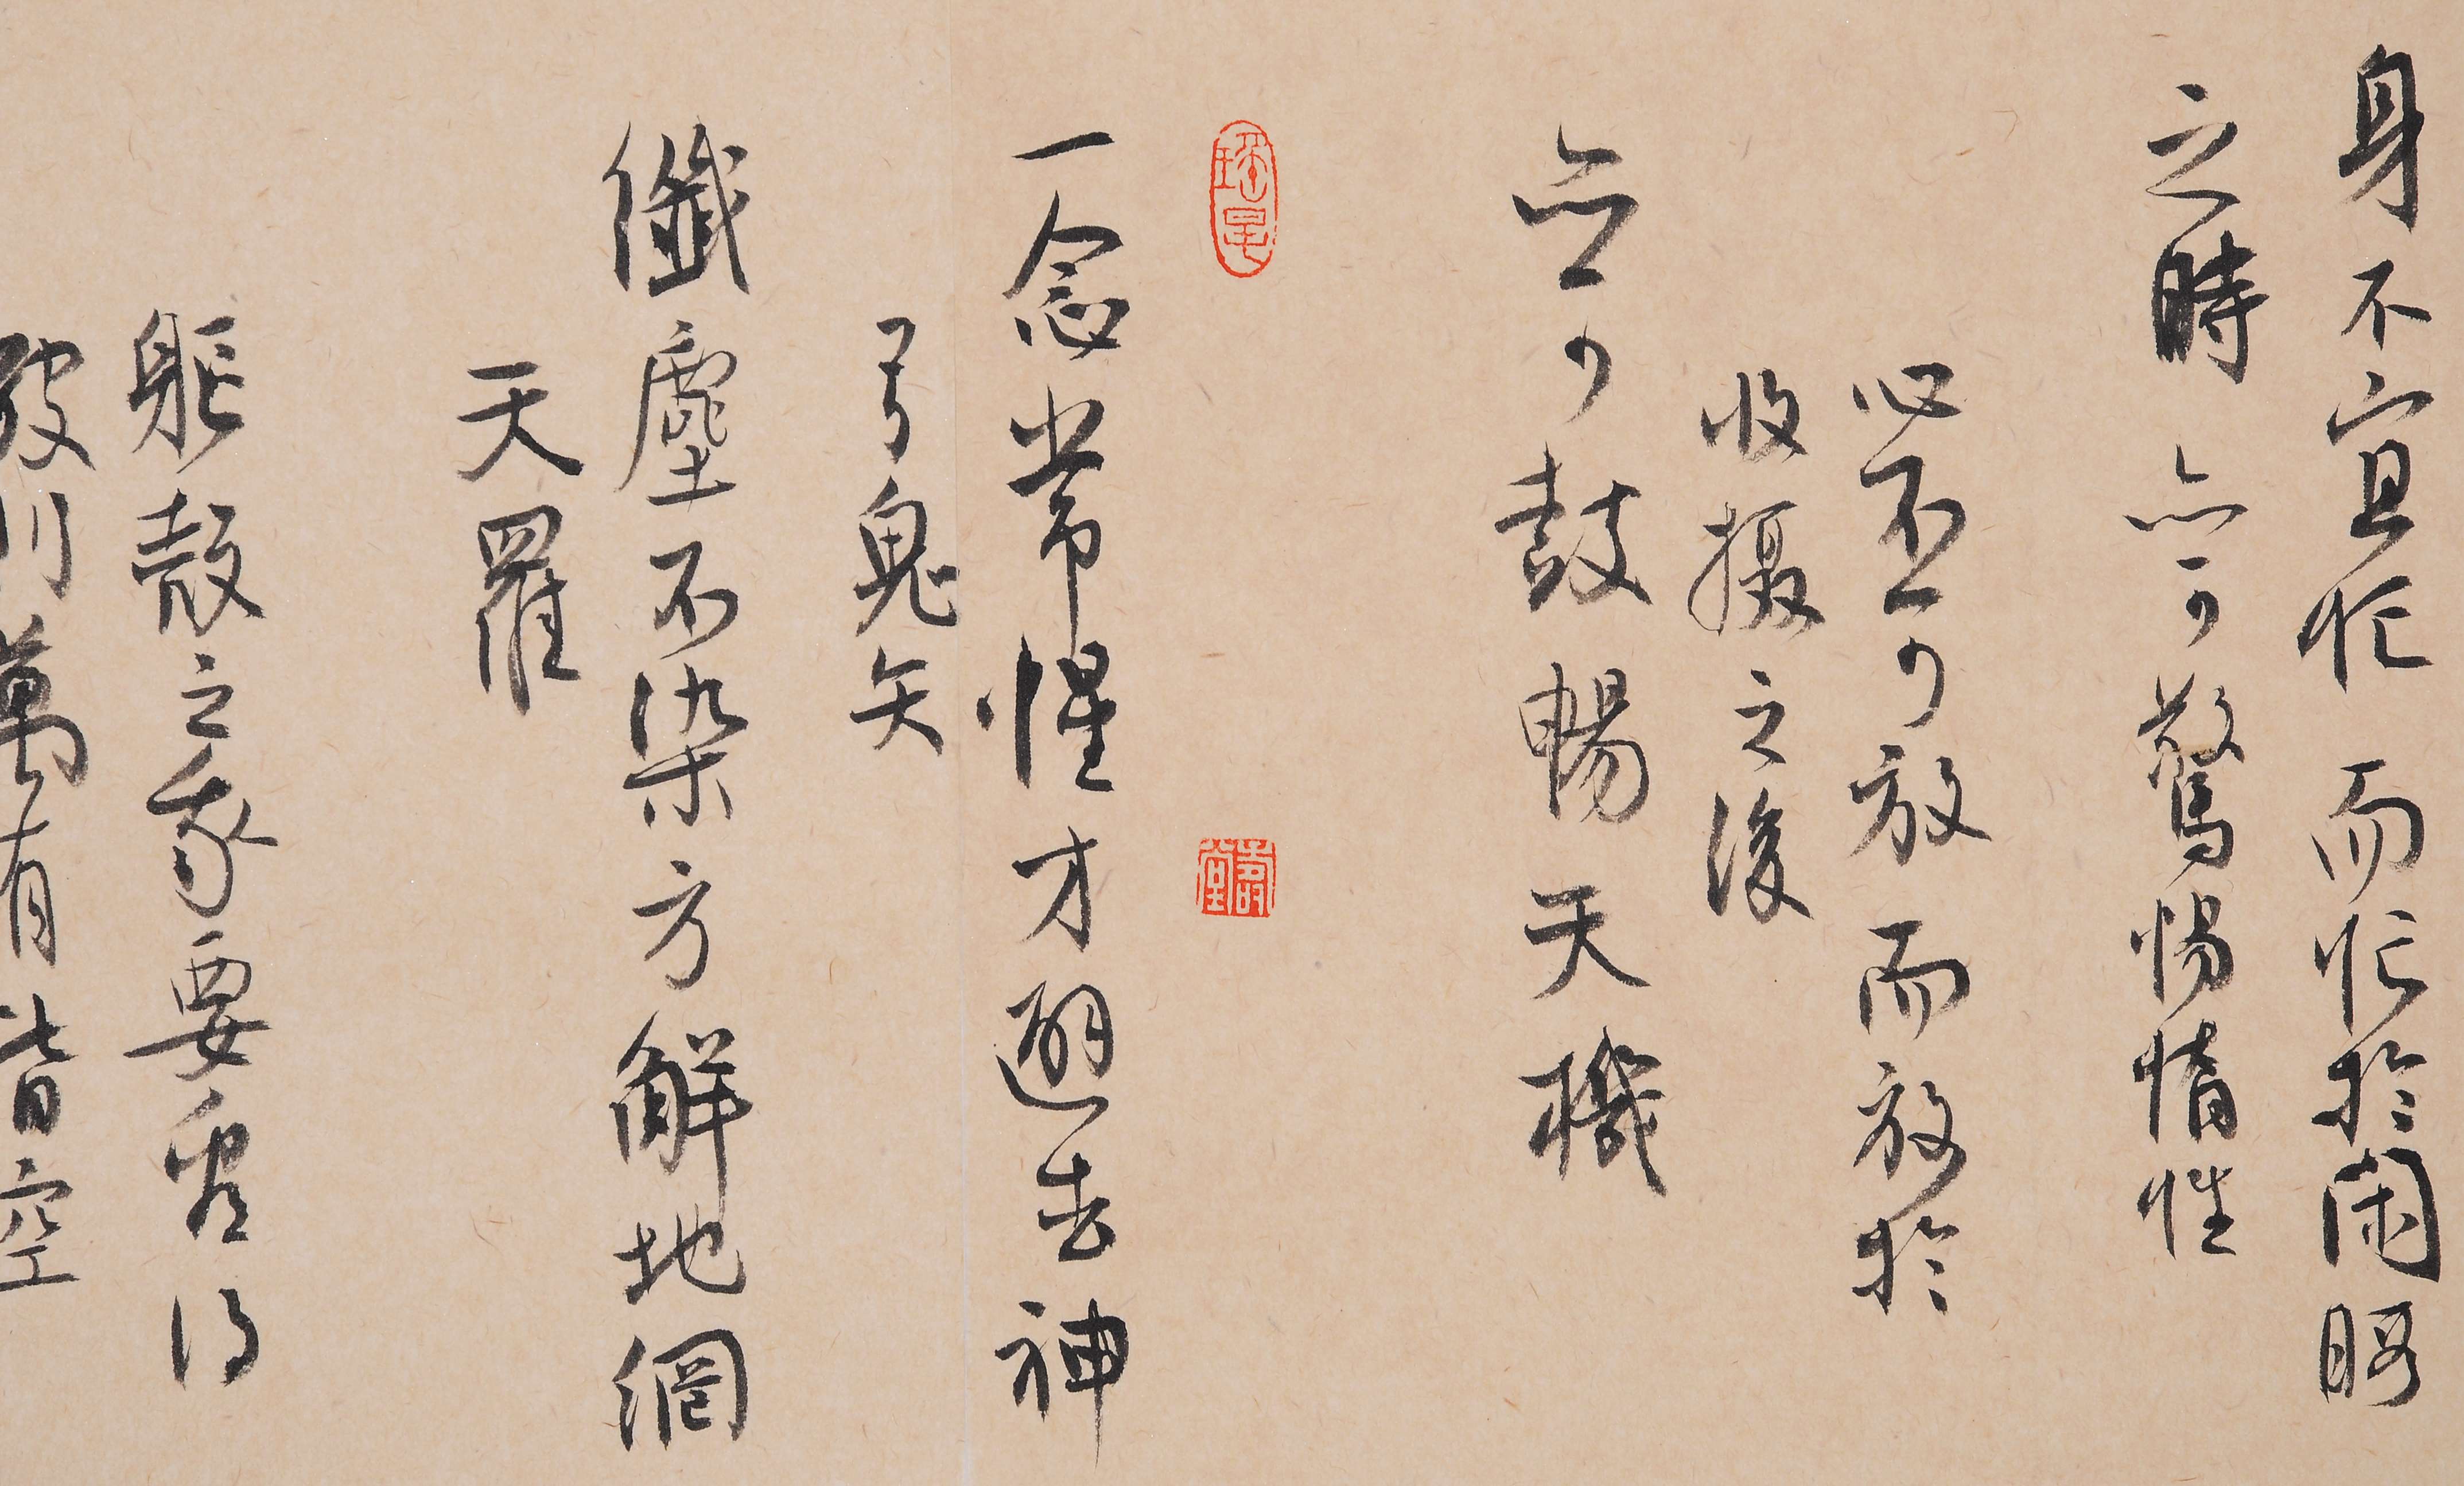 身不宜忙而忙於閑暇
之時亦可驚惕惰性
心不可放而放於
收攝之後
亦可鼓暢天機
一念常惺才避去神
弓鬼矢
纖塵不染方解地網
天羅
軀殼之我要看得
破則萬有皆空